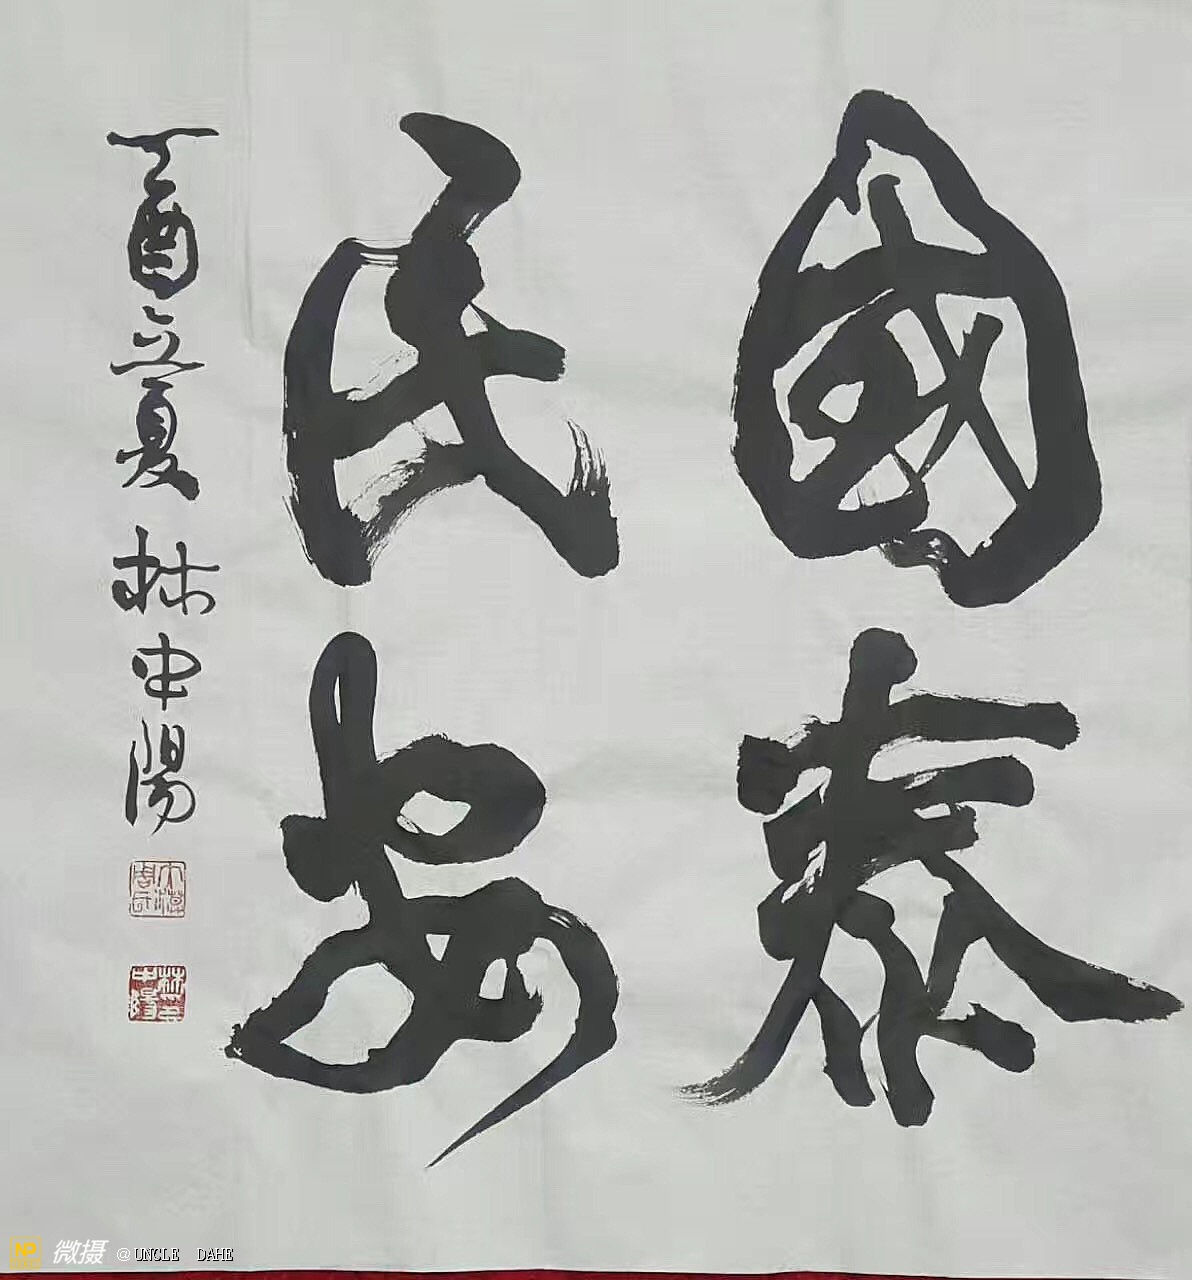 國泰
民安
丁酉立夏 林中陽
林中陽
NP 微摄 @UNCLE DAHE